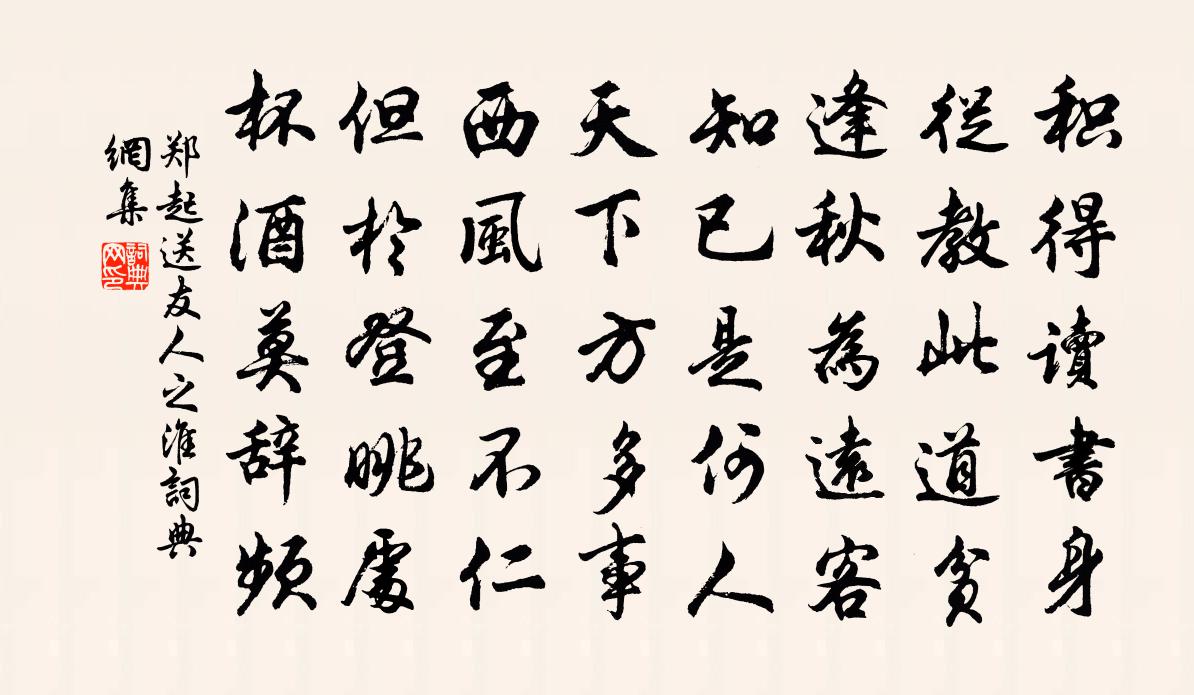 积得讀書身
從教此道贫
逢秋為遠客
知已是何人
天下方多事
西風至不仁
但於登眺處
杯酒莫辞频
郑起送友人之淮詞典
網集
詞典网印